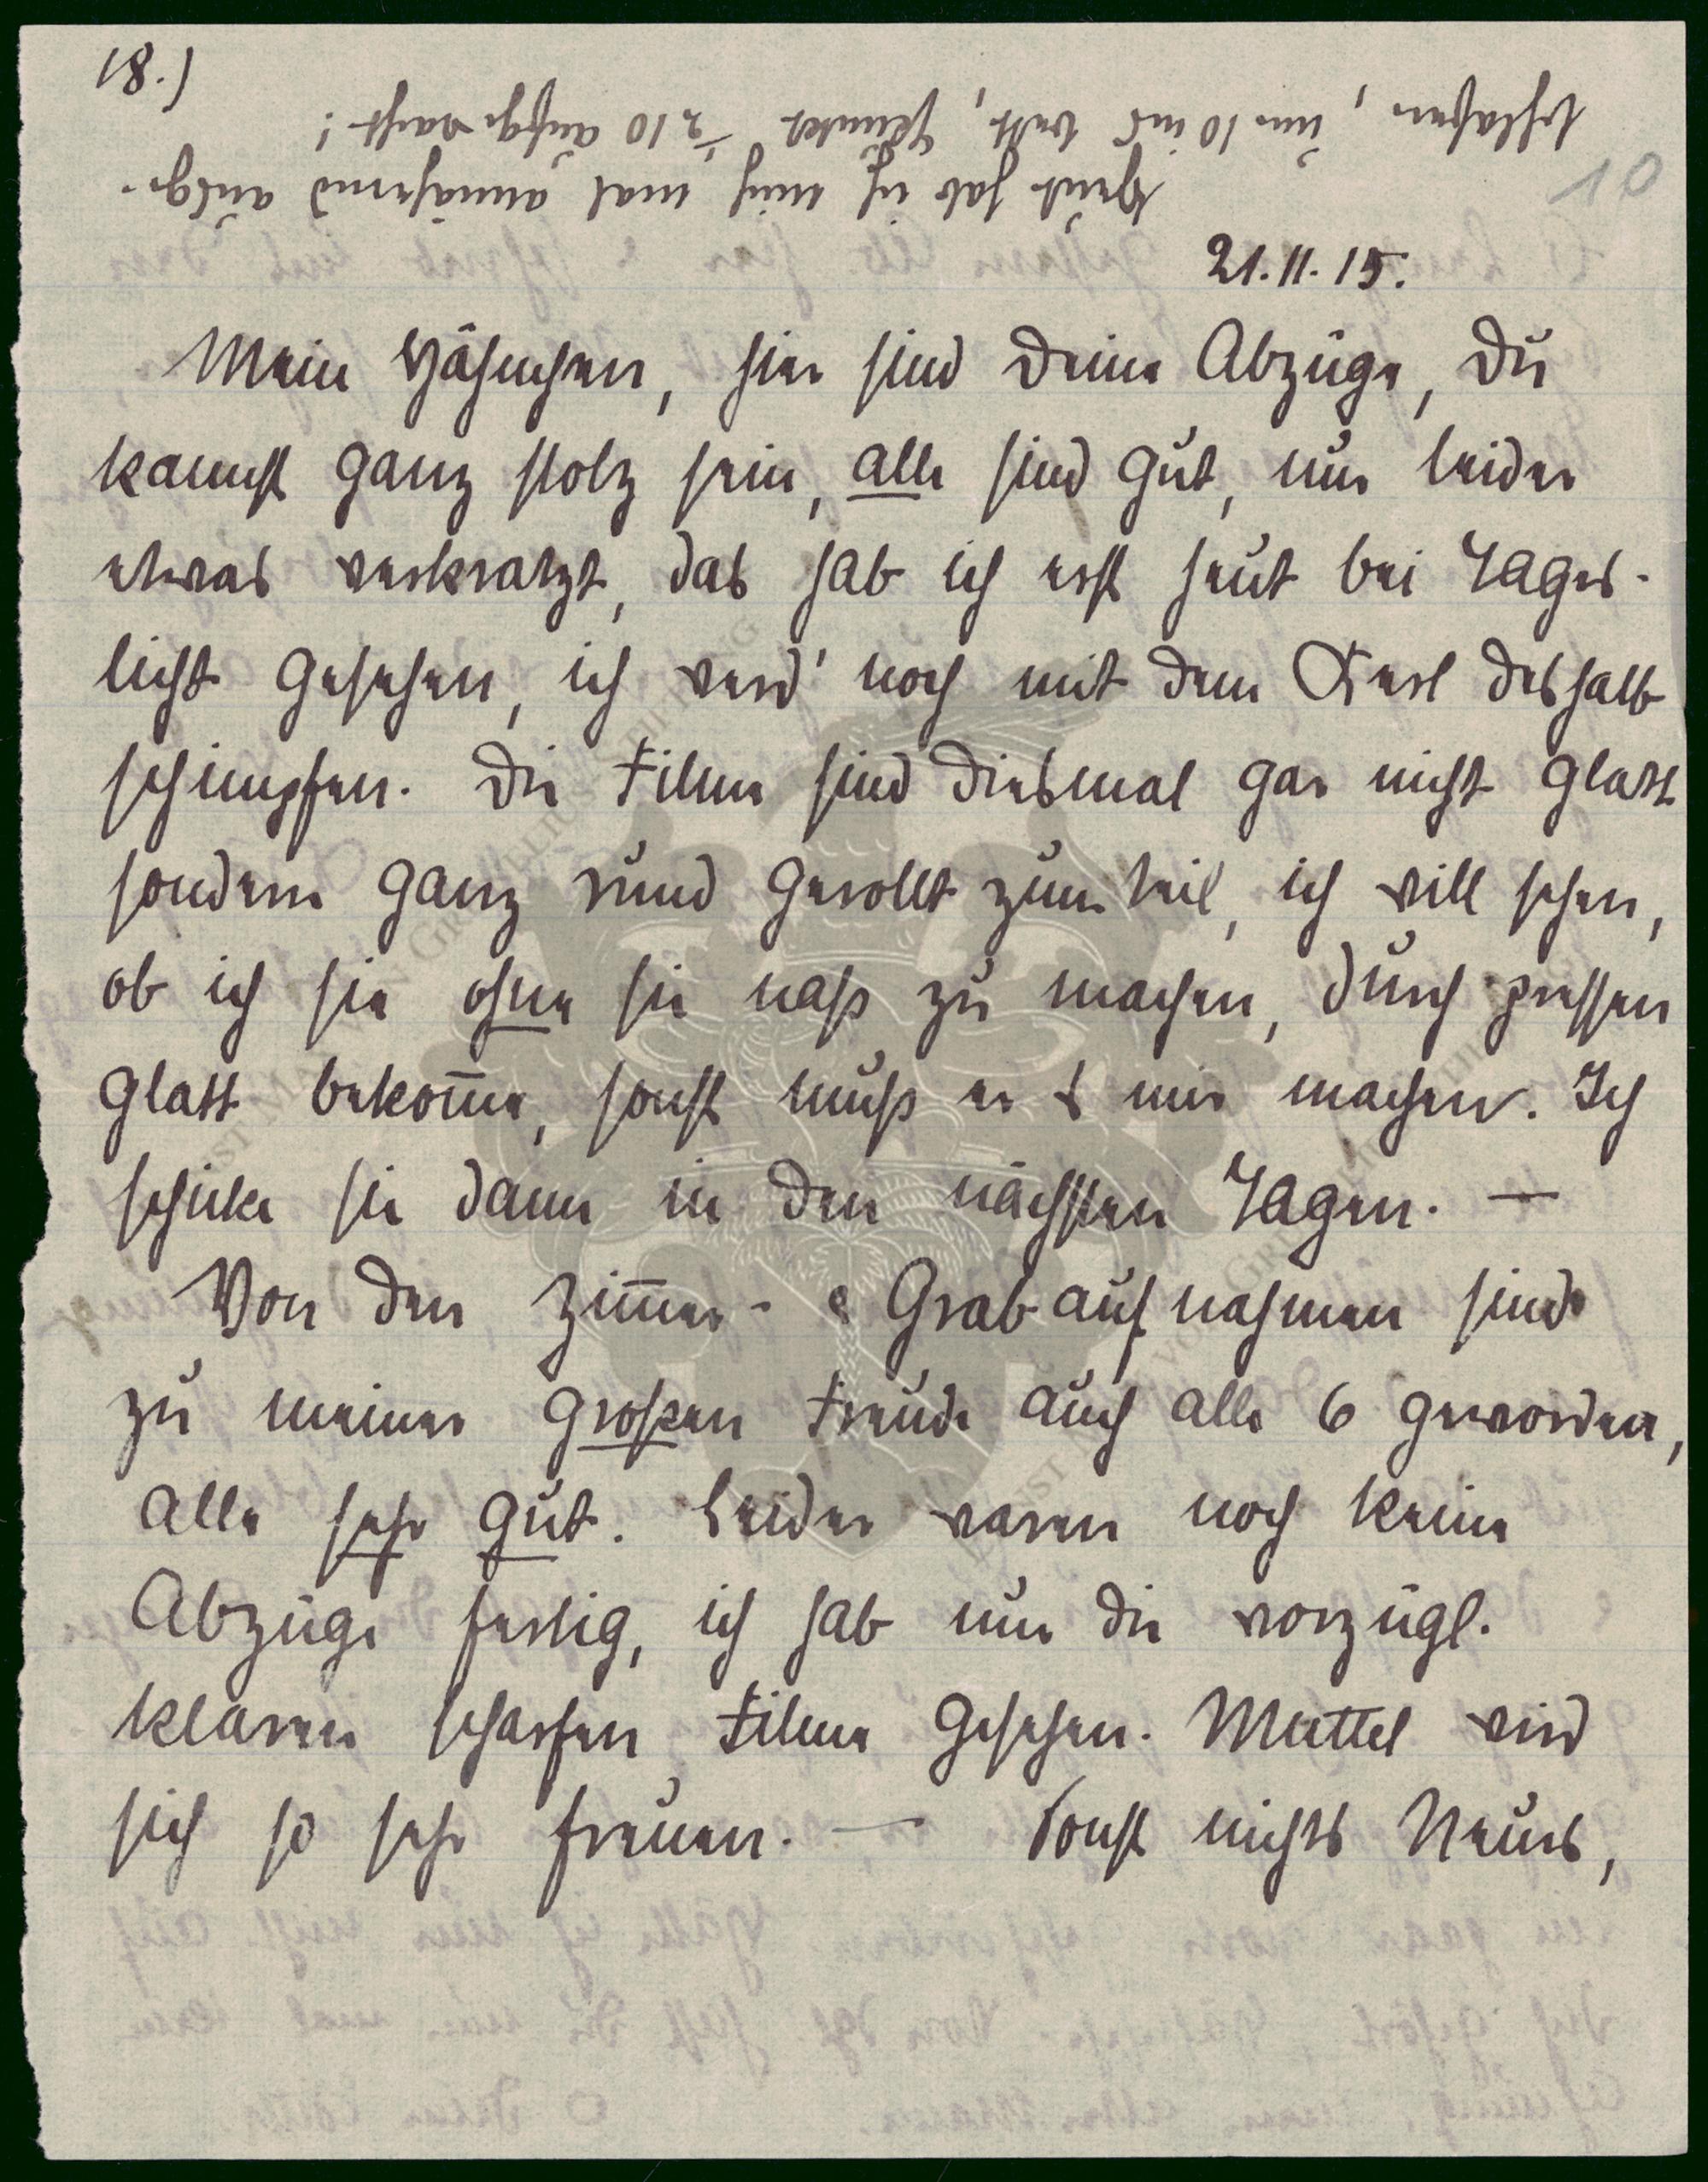 18.)
10
Heut hab ich mich mal annähernd ausge-
schlafen, um 10 ins Bett, ½ 10 aufgewacht!
21.11.15.
Mein Häschen, hier sind Deine Abzüge, Du
kannst ganz stolz sein, alle sind gut, nur leider
etwas verkratzt, das hab ich erst heut bei Tages-
licht gesehen, ich werd' noch mit dem Kerl deshalb
schimpfen. Die Filme sind diesmal gar nicht glatt
sondern ganz rund gerollt zum teil, ich will sehen,
ob ich sie ohne sie naß zu machen, durch pressen
glatt bekom̅e, sonst muß er s mir machen. Ich
schicke sie dann in den nächsten Tagen. —
Von den Zim̅er- & Grabaufnahmen sind
zu meiner großen Freude auch alle 6 geworden,
alle sehr gut. Leider waren noch keine
Abzüge fertig, ich hab nur die vorzügl.
klaren scharfen Filme gesehen. Muttel wird
sich so sehr freuen. — Sonst nichts Neues,